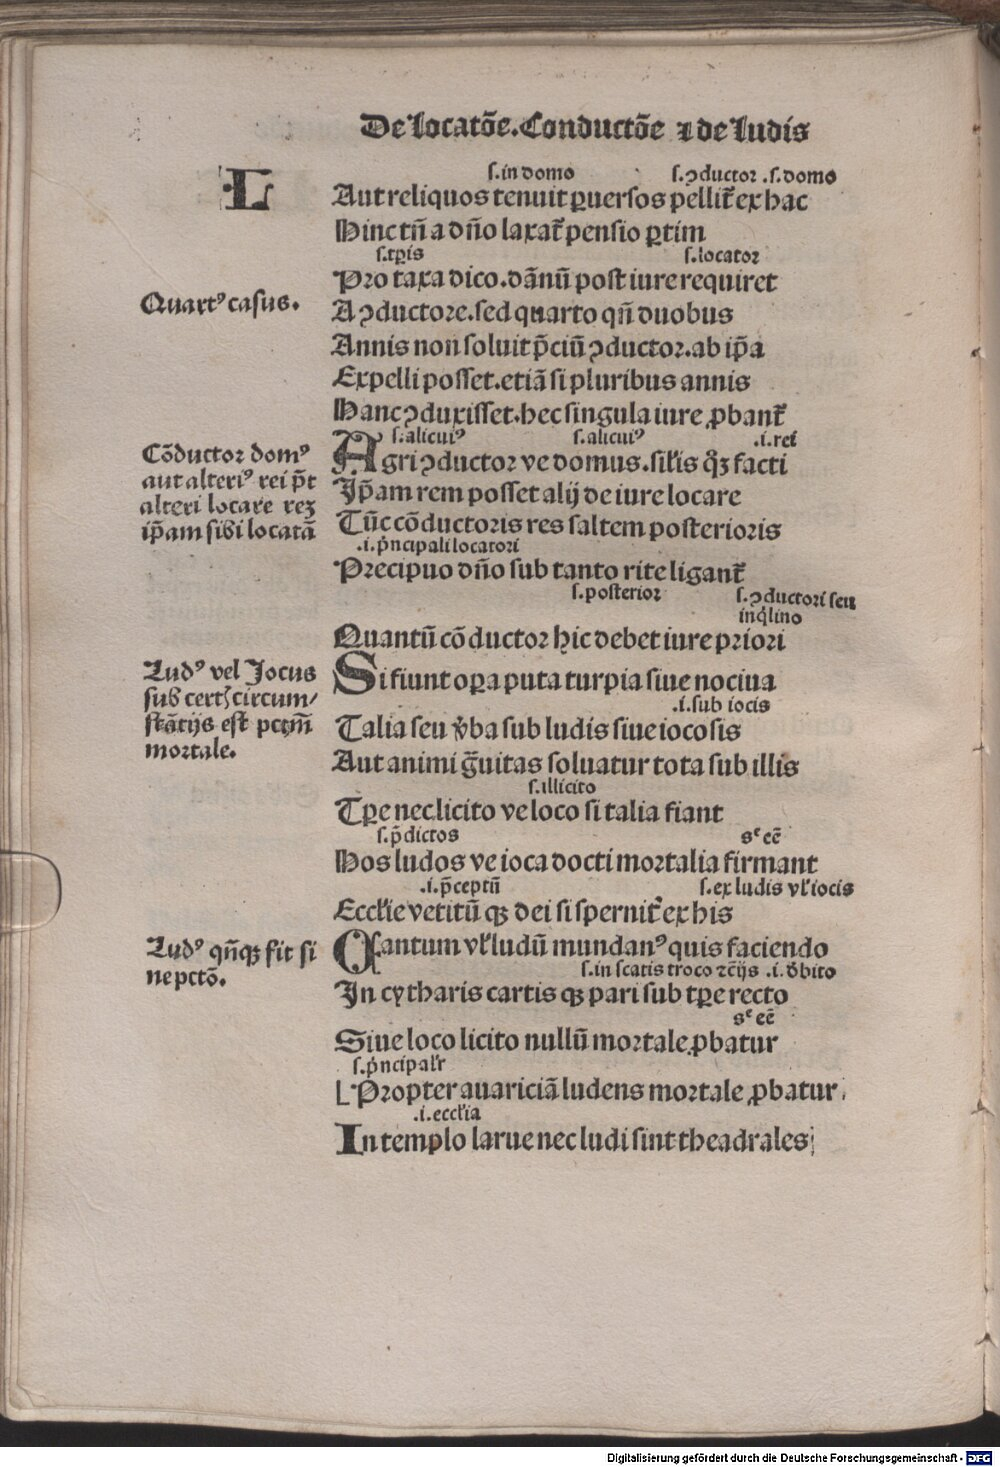 De locatōe. Conductōe ⁊ de ludis
L
s. in domo s. ꝯductor .s. domo
Aut reliquos tenuit ꝑuersos pellit̄ ex hac
Hinc tn̄ a dn̄o laxat̄ pensio ꝑtim
s. tꝑis s. locator
Pro taxa dico. dānū post iure requiret
Quartꝰ casus.
A ꝯductore. sed quarto qn̄ duobus
Annis non soluit p̄ciū ꝯductor. ab ip̄a
Expelli posset. etiā si pluribus annis
Hanc ꝯduxisset. hec singula iure ꝓbant̄
s. alicuiꝰ s. alicuiꝰ .i. rei
Cōductor domꝰ
aut alteriꝰ rei pōt
alteri locare rem
ip̄am sibi locatā
Agri ꝯductor ve domus. sil̓is qꝫ facti
Ip̄am rem posset alij de iure locare
Tūc cōductoris res saltem posterioris
.i. p̓ncipali locatori
Precipuo dn̄o sub tanto rite ligant̄
s. posterior s. ꝯductori seu
inq̓lino
Quantū cōductor hic debet iure priori
Ludꝰ vel Jocus
sub cert̓ circum/
stātijs est pctm̄
mortale.
Si fiunt oꝑa puta turpia siue nociua
.i. sub iocis
Talia seu v̓ba sub ludis siue iocosis
Aut animi g̓uitas soluatur tota sub illis
s. illicito
Tꝑe nec licito ve loco si talia fiant
s. p̄dictos sᵉ eē
Hos ludos ve ioca docti mortalia firmant
.i. p̄ceptū s. ex ludis vl̓ iocis
Eccl̓ie vetitū qꝫ dei si spernit̄ ex his
Ludꝰ qn̄qꝫ fit si
ne pctō.
Cantum vl̓ ludū mundanꝰ quis faciendo
s. in scatis troco ⁊c̄ijs .i. d̓bito
In cytharis cartis qꝫ pari sub tꝑe recto
sᵉ eē
Siue loco licito nullū mortale ꝓbatur
s. p̓ncipal̓r
Propter auariciā ludens mortale ꝓbatur
.i. eccl̓ia
In templo larue nec ludi sint theadrales
Digitalisierung gefördert durch die Deutsche Forschungsgemeinschaft - DFG